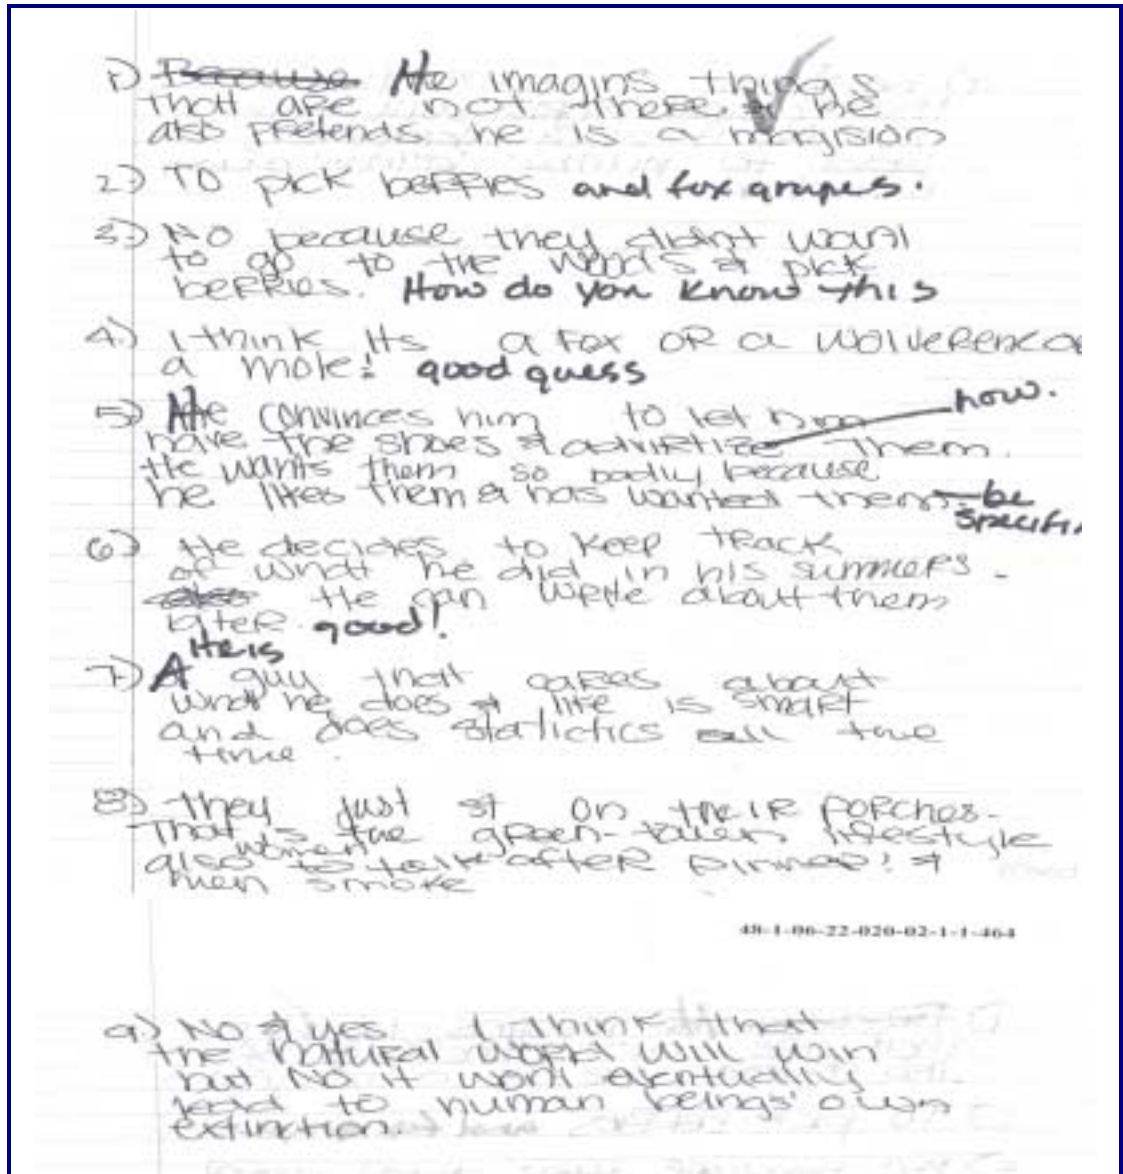 1) Because He imagins things
that are not there & he
also pretends he is a magision
2) TO pick berries and fox grapes.
3) No because they didnt want
to go to the woods & pick
berries. How do you know this
4) I think its a fox OR a wolverene or
a mole! good guess
5) He convinces him to let him
how.
have the shoes & advirtize them.
He wants them so badly because
he likes them & has wanted them. be
specific
6) He decides to keep track
of what he did in his summers.
also He can write about them
later. good!
He is
7) A guy that cares about
what he does & life is smart
and does statictics all the
time.
8) They just sit on their porches.
That is the green-town lifestyle
women
also to talk after dinner! &
men smoke
48-1-06-22-020-02-1-1-464
9) No & yes. I think that
the natural world will win
but No it wont eventually
lead to human beings' own
extinction.